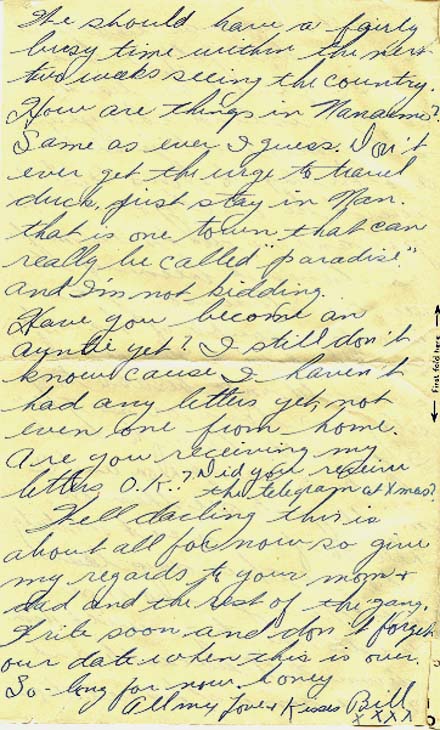 We should have a fairly
busy time within the next
two weeks seeing the country.
How are things in Nanaimo?
Same as ever I guess. Don't
ever get the urge to travel
duck, just stay in Nan.
that is one town that can
really be called "paradise"
and I'm not kidding.
Have you become an
auntie yet? I still don't
know cause I haven't
had any letters yet, not
even one from home.
Are you receiving my
letters O.K.? Did you receive
the telegram at Xmas?
Well darling this is
about all for now so give
my regards to your mom +
dad and the rest of the gang.
Write soon and don't forget
our date when this is over.
So-long for now honey
All my Love + Kisses Bill
XXXX
First fold here